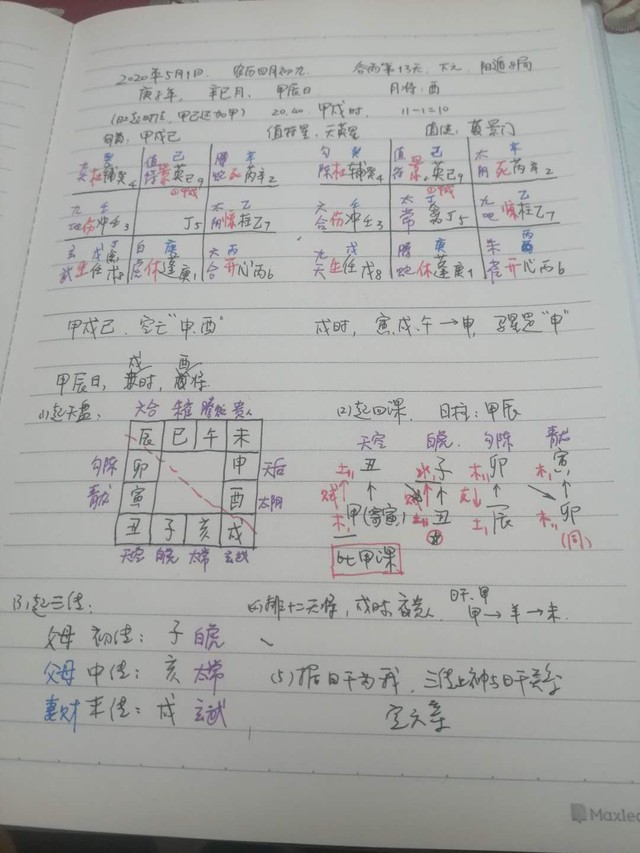 2020年5月1日 农历四月初九 谷雨第13天、下元、阳遁8局
庚子年、辛巳月、甲辰日 月将:酉
(日起时法,甲己还加甲) 20:40 甲戌时 11-1=10
旬首:甲戌己 值符星:天英星 值使:景门
癸 值 己 螣 辛 勾 癸 值 己 太 辛
天杜辅癸4 符景英巳9 蛇死芮辛2 陈杜辅癸4 符景英己9 阴死芮辛2
九 壬 太 乙 六 壬 太 丁 九 乙
地伤冲壬3 丁5 阴惊柱乙7 合伤冲壬3 常 禽丁5 地惊柱乙7
玄 戊 白 庚 六 丙 九 戊 螣 庚 朱 丙
武生任戊8 虎休蓬庚1 合开心丙6 天生任戊8 蛇休蓬庚1 雀开心丙6
甲戌己、空亡"申、酉" 戌时,寅、戌、午→申,马星是"申"
戌 酉
甲辰日、时、将
(1)起天盘: 六合 朱雀 螣蛇 贵人 (2)起四课、 日柱:甲辰
辰 巳 午 未 天空 白虎 勾陈 青龙
勾陈 卯 申 天后 土丑 水子 木卯 木寅
青龙 寅 酉 太阴 木甲(寄寅) 丑 土辰 木卯
丑 子 亥 戌 (同)
天空 白虎 太常 玄武 比甲课
(3)起三传: (4)排十二天将,戌时夜贵人、 日干:甲
父母 初传:子 白虎 甲→羊→未
父母 中传:亥 太常 (5)据日干为我,三传上神与日干关系
妻财 末传:戌 玄武 定六亲
Maxlea